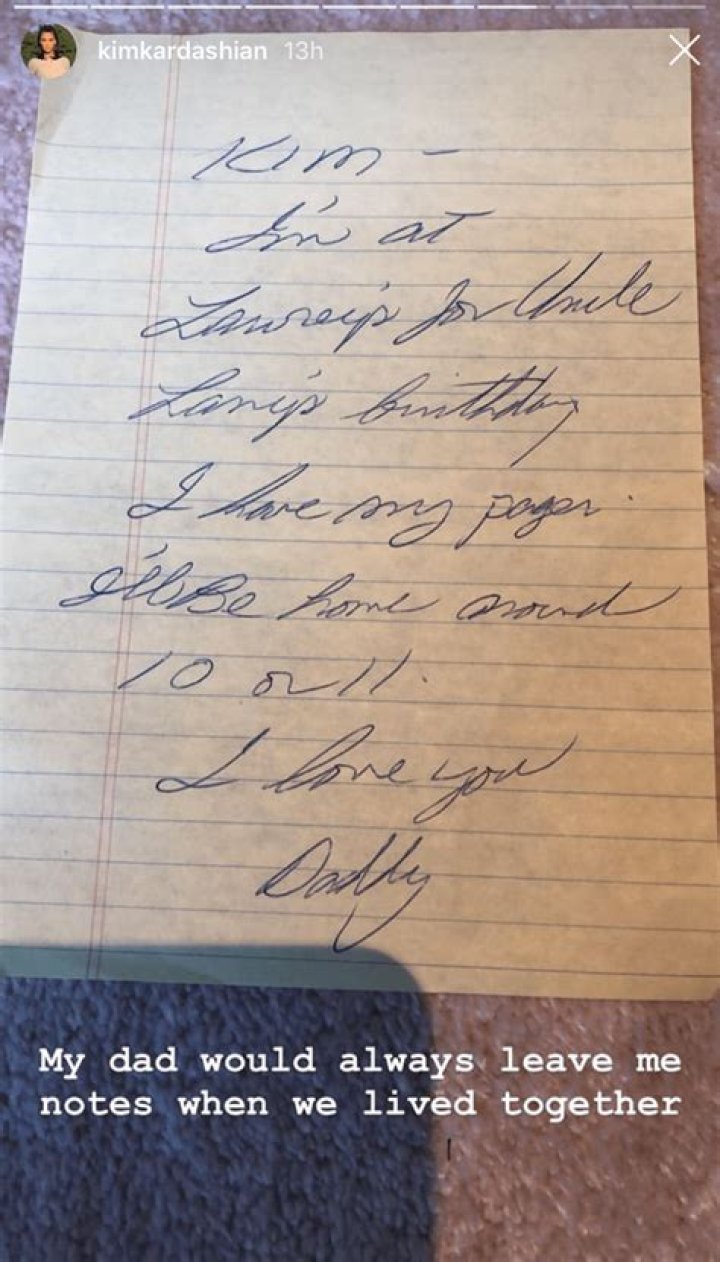 kimkardashian 13h
Kim -
I'm at
Lawrey's for Uncle
Larry's birthday
I have my pager.
I'll Be home around
10 or 11.
I love you
Daddy
My dad would always leave me
notes when we lived together